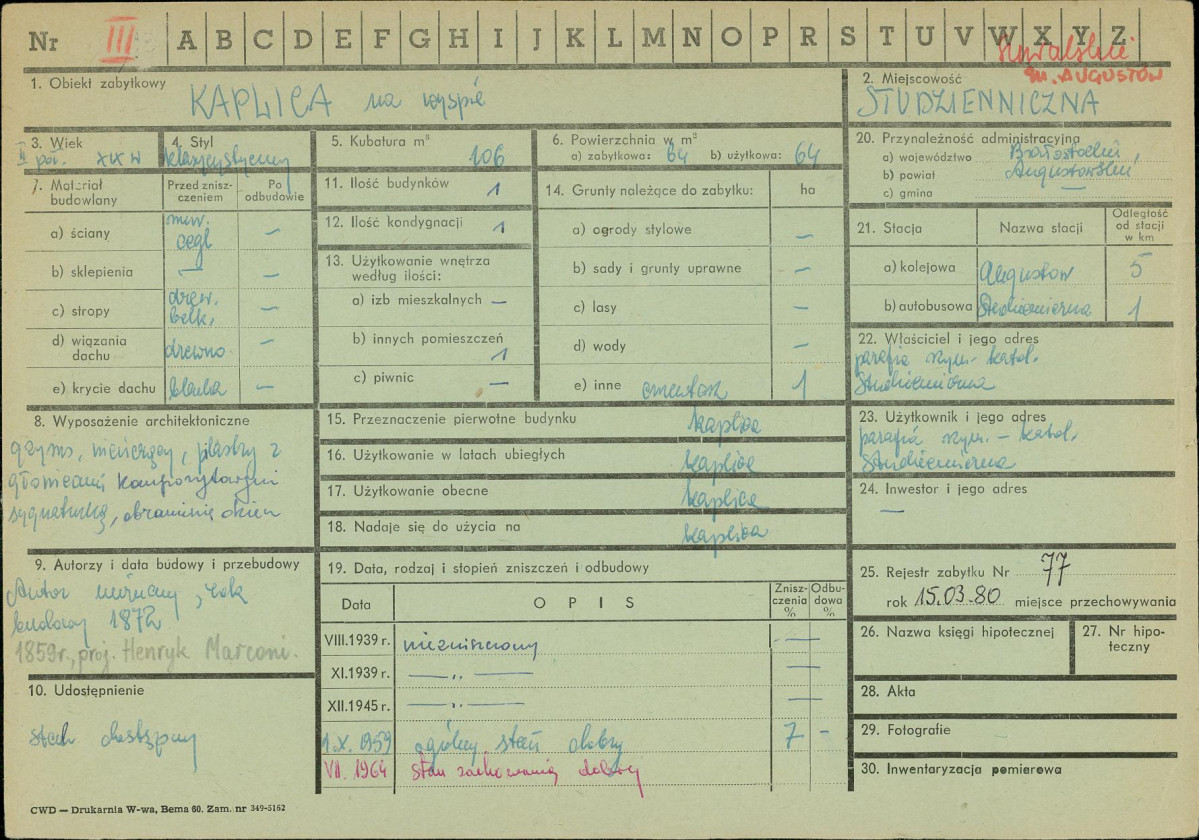 Nr III A B C D E F G H I J K L M N O P R S T U V W X Y Z
Kowalskie
m. AUGUSTÓW
1. Obiekt zabytkowy
KAPLICA na wyspie
2. Miejscowość
STUDZIENNICZNA
3. Wiek
II poł. XIX w
4. Styl
klasycystyczny
5. Kubatura m³
106
6. Powierzchnia w m²
a) zabytkowa: 64 b) użytkowa: 64
20. Przynależność administracyjna
a) województwo Białostockie,
b) powiat Augustowskie
c) gmina —
7. Materiał budowlany
Przed zniszczeniem
Po odbudowie
a) ściany mur. cegl —
b) sklepienia — —
c) stropy drew. belk. —
d) wiązania dachu drewno —
e) krycie dachu blacha —
11. Ilość budynków 1
12. Ilość kondygnacji 1
13. Użytkowanie wnętrza
według ilości:
a) izb mieszkalnych —
b) innych pomieszczeń 1
c) piwnic —
14. Grunty należące do zabytku: ha
a) ogrody stylowe —
b) sady i grunty uprawne —
c) lasy —
d) wody —
e) inne cmentarz 1
21. Stacja
Nazwa stacji
Odległość od stacji w km
a) kolejowa Augustów 5
b) autobusowa Studzieniczna 1
22. Właściciel i jego adres
parafia rzym. katol.
Studzieniczna
8. Wyposażenie architektoniczne
gzyms, wieńczący, pilastry z
głowicami kompozytowymi
sygnaturką, obramienia okien
15. Przeznaczenie pierwotne budynku kaplica
16. Użytkowanie w latach ubiegłych kaplica
17. Użytkowanie obecne kaplica
18. Nadaje się do użycia na kaplica
23. Użytkownik i jego adres
parafia rzym. – katol.
Studzieniczna
24. Inwestor i jego adres
—
9. Autorzy i data budowy i przebudowy
Autor nieznany, rok
budowy 1872
1859r., proj. Henryk Marconi.
10. Udostępnienie
stale dostępny
19. Data, rodzaj i stopień zniszczeń i odbudowy
Data
OPIS
Zniszczenia %
Odbudowa %
VIII.1939 r. niezniszczony —
XI.1939 r. — „ — —
XII.1945 r. — „ — —
1.X.1959 ogólny stan dobry 7 –
VII.1964 Stan zachowania dobry
25. Rejestr zabytku Nr 77
rok 15.03.80 miejsce przechowywania
26. Nazwa księgi hipotecznej
27. Nr hipoteczny
28. Akta
29. Fotografie
30. Inwentaryzacja pomiarowa
CWD — Drukarnia W-wa, Bema 60. Zam. nr 349-5162